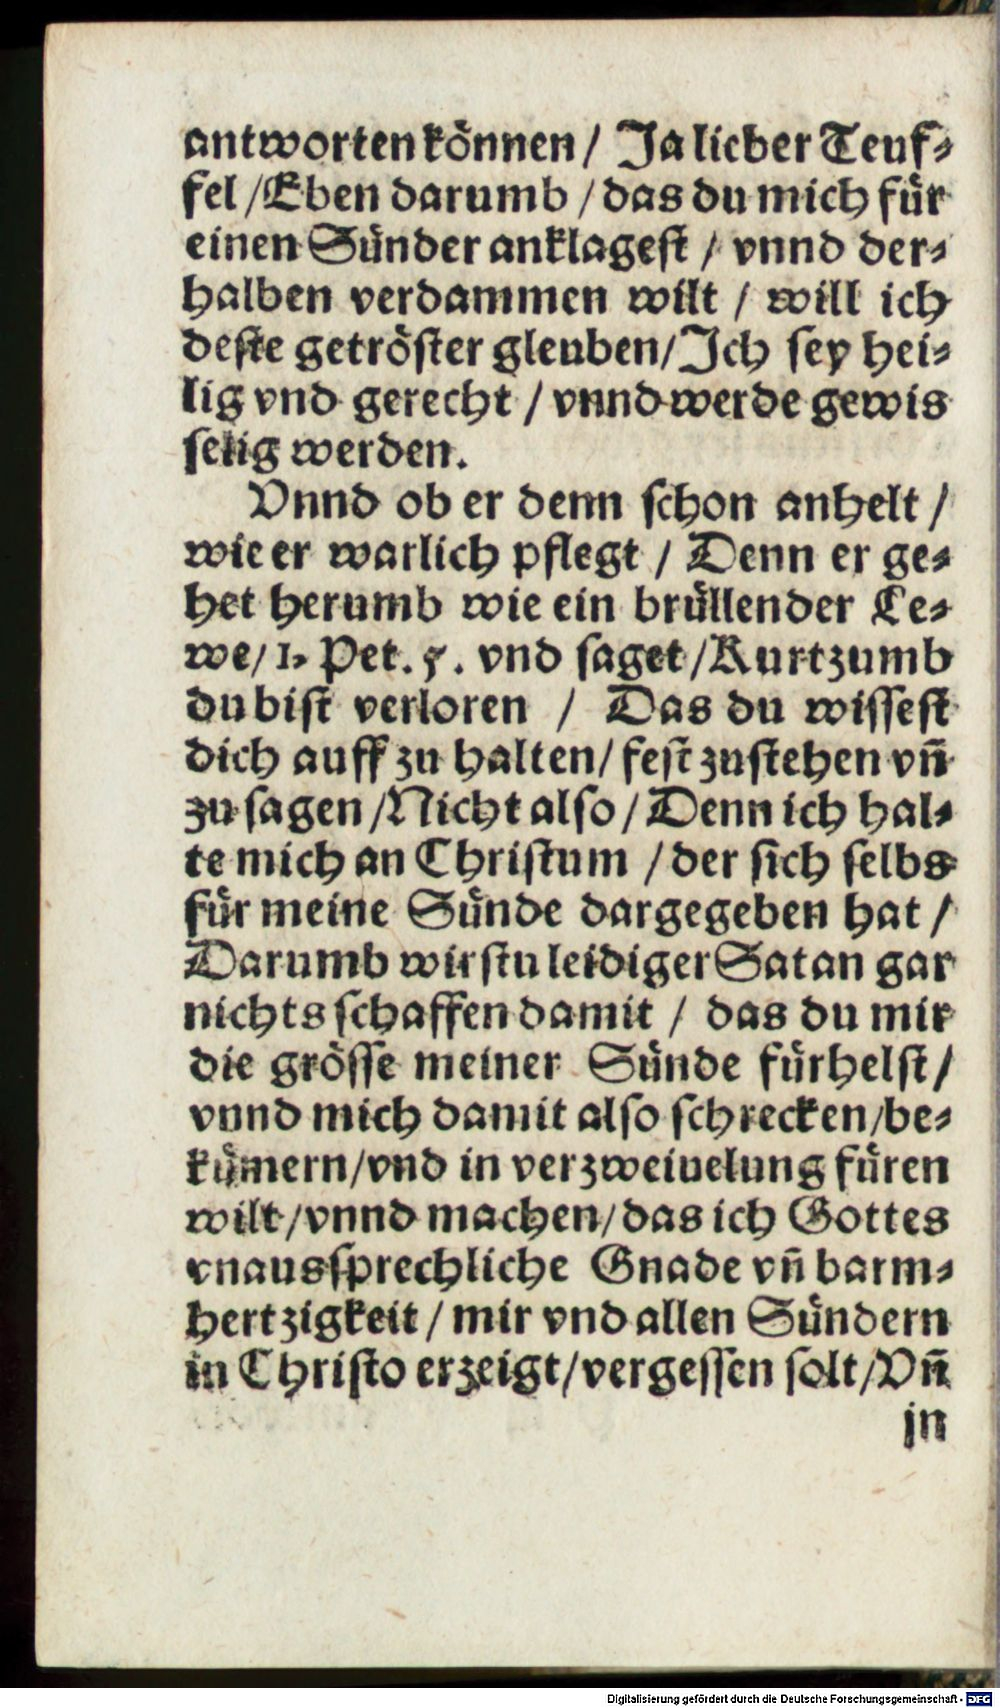 antworten können / Ja lieber Teuf⸗
fel / Eben darumb / das du mich für
einen Sünder anklagest / vnnd der⸗
halben verdammen wilt / will ich
deste getröster gleuben / Ich sey hei⸗
lig vnd gerecht / vnnd werde gewis
selig werden.
Vnnd ob er denn schon anhelt /
wie er warlich pflegt / Denn er ge⸗
het herumb wie ein brüllender Le⸗
we / 1. Pet. 5. vnd saget / Kurtzumb
du bist verloren / Das du wissest
dich auff zu halten / fest zustehen vñ
zu sagen / Nicht also / Denn ich hal⸗
te mich an Christum / der sich selbs
für meine Sünde dargegeben hat /
Darumb wirstu leidiger Satan gar
nichts schaffen damit / das du mir
die grösse meiner Sünde fürhelst /
vnnd mich damit also schrecken / be⸗
küm̃ern / vnd in verzweiuelung füren
wilt / vnnd machen / das ich Gottes
vnaussprechliche Gnade vñ barm⸗
hertzigkeit / mir vnd allen Sündern
in Christo erzeigt / vergessen solt / Vñ
jn
Digitalisierung gefördert durch die Deutsche Forschungsgemeinschaft - DFG